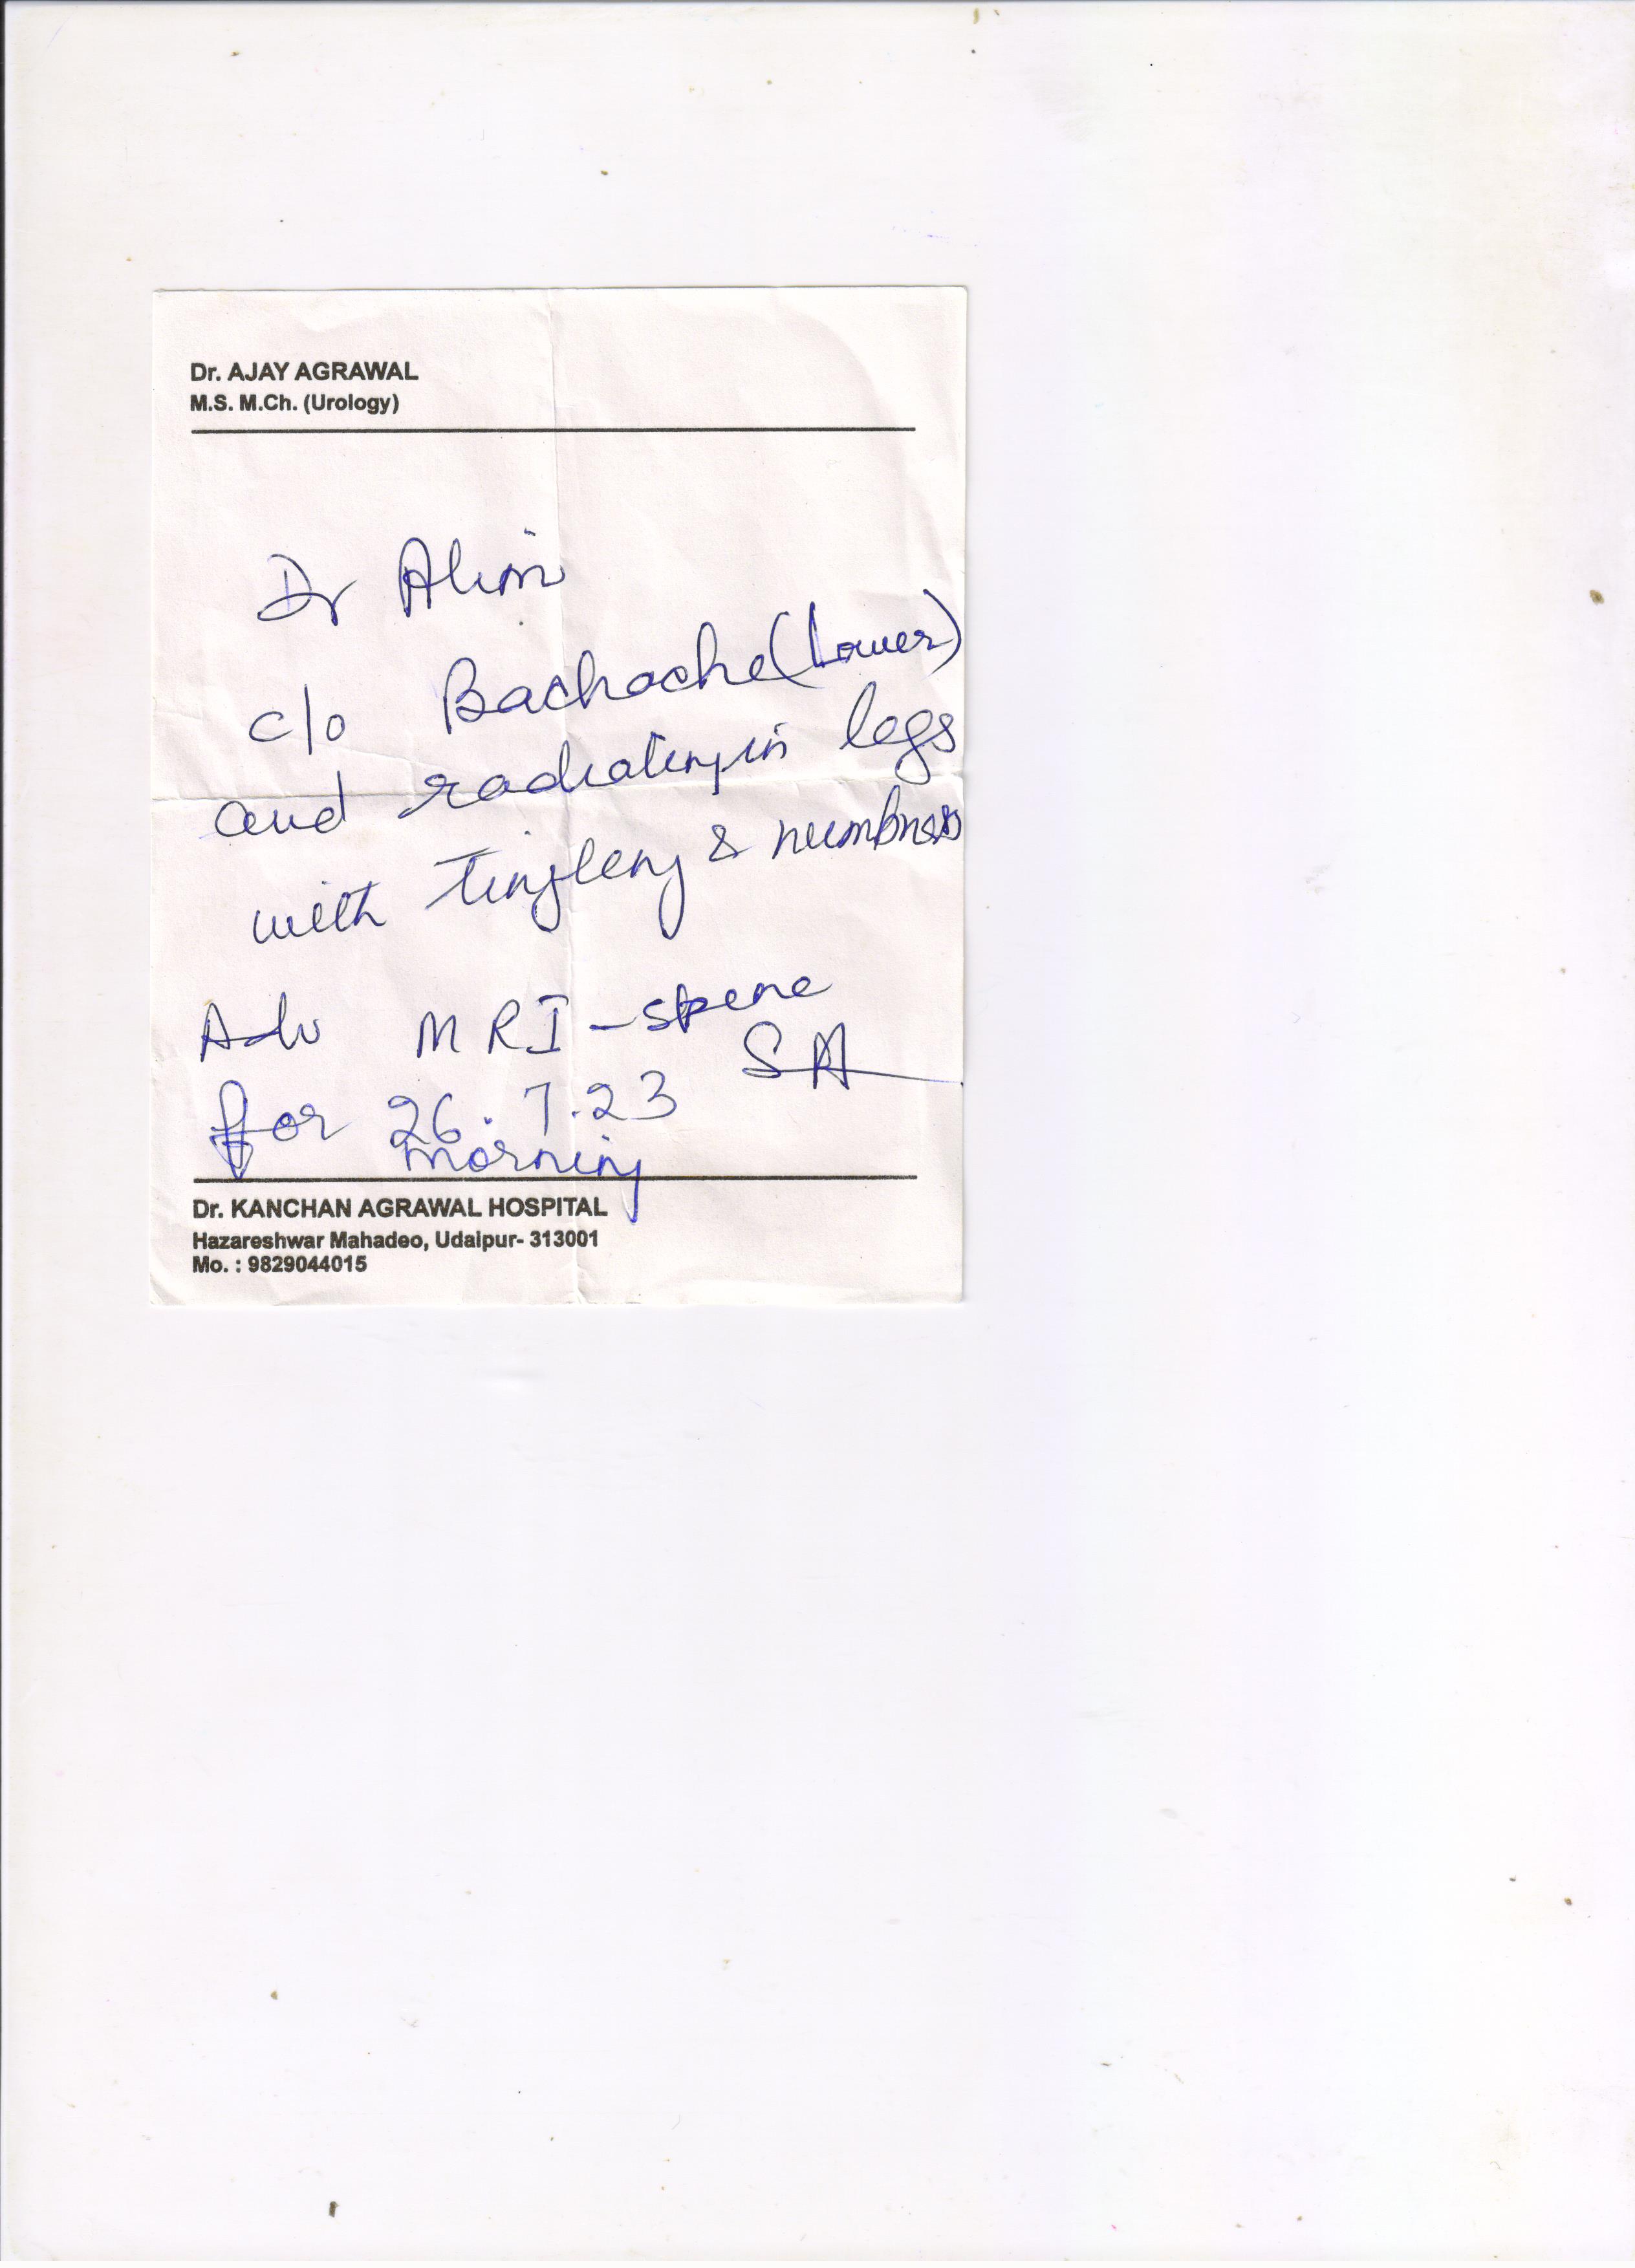 Dr. AJAY AGRAWAL
M.S. M.Ch. (Urology)
Dr Alim
c/o Backache (Lower)
and radiating in legs
with tingling & numbness
Adv MRI - spine
SA
for 26.7.23
morning
Dr. KANCHAN AGRAWAL HOSPITAL
Hazareshwar Mahadeo, Udaipur- 313001
Mo. : 9829044015